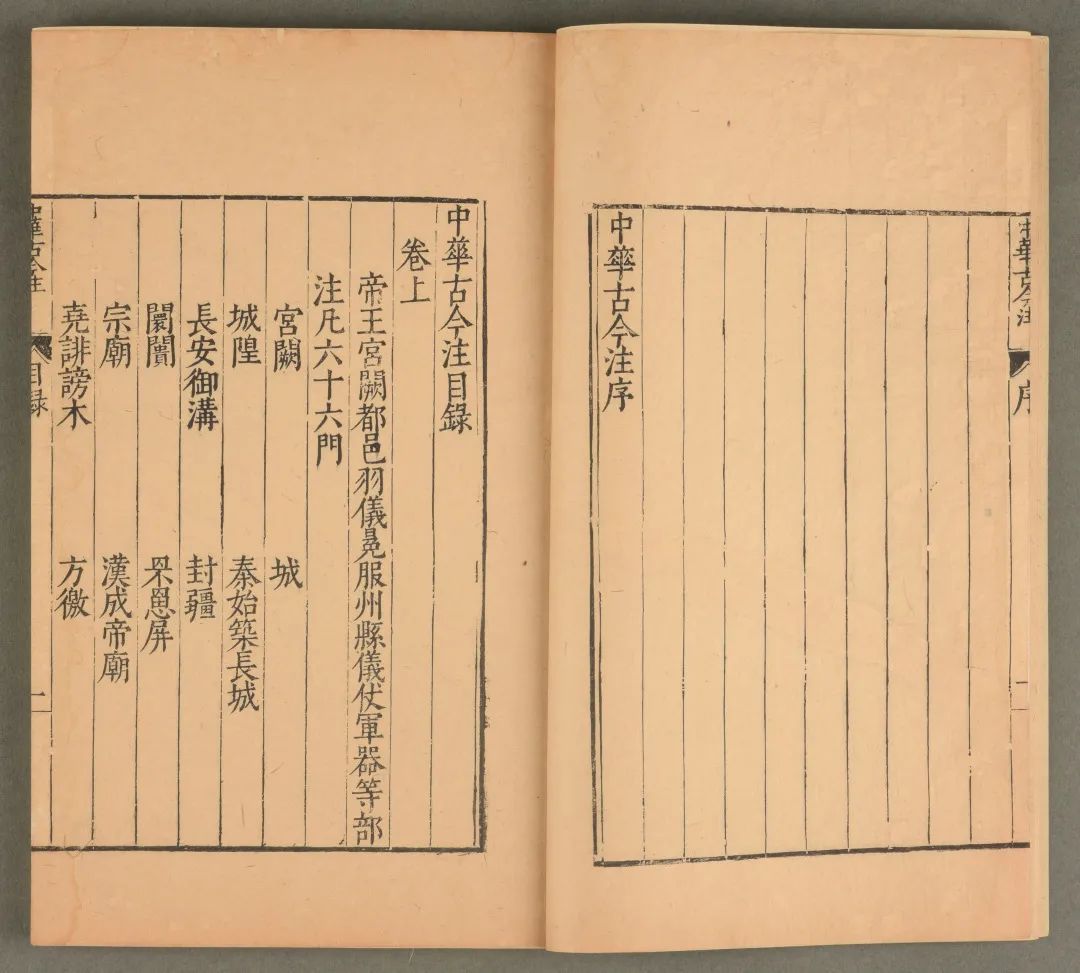 中華古今注
序
二
中華古今注序
中華古今注目錄
卷上
帝王宮闕都邑羽儀冕服州縣儀仗軍器等部
注凡六十六門
宮闕 城
城隍 秦始築長城
長安御溝 封疆
闤闠 罘罳屏
宗廟 漢成帝廟
堯誹謗木 方徼
中華古今注
目錄
一